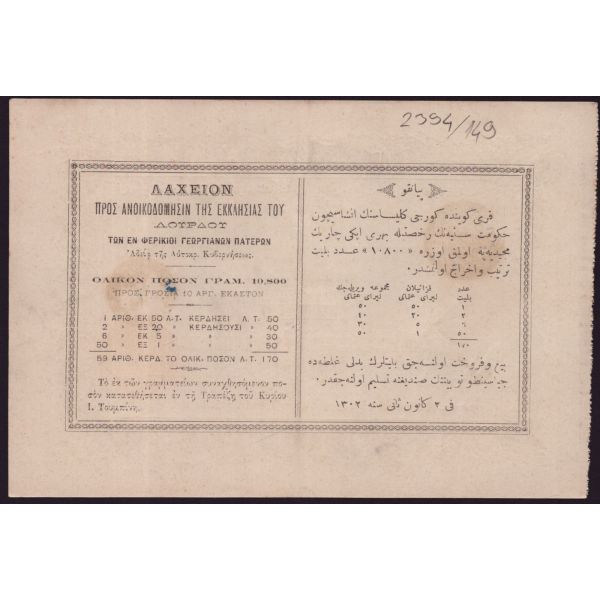 2394/149
ΛΑΧΕΙΟΝ
ΠΡΟΣ ΑΝΟΙΚΟΔΟΜΗΣΙΝ ΤΗΣ ΕΚΚΛΗΣΙΑΣ ΤΟΥ
ΛΟΥΡΔΟΥ
ΤΩΝ ΕΝ ΦΕΡΙΚΙΟΙ ΓΕΩΡΓΙΑΝΩΝ ΠΑΤΕΡΩΝ
Ἀδείᾳ τῆς Αὐτοκρ. Κυβερνήσεως.
ΟΛΙΚΟΝ ΠΟΣΟΝ ΓΡΑΜ. 10,800
ΠΡΟΣ ΓΡΟΣΙΑ 10 ΑΡΓ. ΕΚΑΣΤΟΝ
1 ΑΡΙΘ. ΕΚ 50 Λ.Τ. ΚΕΡΔΗΣΕΙ Λ. Τ. 50
2 » ΕΞ 20 » ΚΕΡΔΗΣΟΥΣΙ » 40
6 » ΕΚ 5 » » 30
50 » ΕΞ 1 » » 50
59 ΑΡΙΘ. ΚΕΡΔ. ΤΟ ΟΛΙΚ. ΠΟΣΟΝ Λ. Τ. 170
Τὸ ἐκ τῶν γραμματείων συναχθησόμενον πο-
σὸν κατατεθήσεται ἐν τῇ Τραπέζῃ τοῦ Κυρίου
Ι. Τουμπίνη.
پیانقو
فری کوینده کورجی کلیساسنك انشاسیچون
حکومت سنیه‌نك رخصتیله بهری ایکی چاریك
مجیدیه‌یه اولمق اوزره «١٠٨٠٠» عدد بلیت
ترتیب و اخراج اولنمشدر.
عدد بلیت قزانیلان لیرای عثمانی مجموعه ویریله‌جك لیرای عثمانی
١ ٥٠ ٥٠
٢ ٢٠ ٤٠
٦ ٥ ٣٠
٥٠ ١ ٥٠
١٧٠
بیع و فروخت اولنه‌جق بلیتلرك بدلی غلطه‌ده
صندیغنه تسلیم اولنه‌جقدر.
فی ٢ کانون ثانی سنه ١٣٠٢